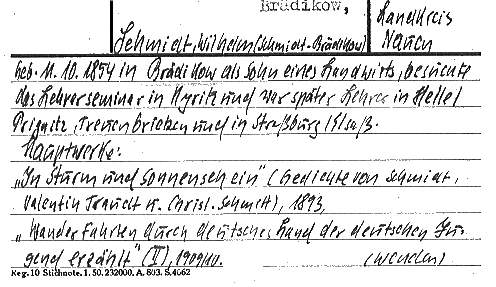 Brädikow,
Landkreis
Nauen
Schmidt, Wilhelm (Schmidt-Brädikow)
Geb. 11. 10. 1854 in Brädikow als Sohn eines Landwirts, besuchte
das Lehrerseminar in Kyritz und war später Lehrer in Helle/
Prignitz, Treuenbrietzen und in Straßburg/Elsaß.
Hauptwerke:
„In Sturm und Sonnenschein" (Gedichte von Schmidt,
Valentin Traudt u. Christ. Schmitt), 1893,
„Wanderfahrten durch deutsches Land der deutschen Ju-
gend erzählt" (II), 1909/10.
(wenden)
Reg. 10 Stichnote. 1. 50. 232000. A. 803. S. 4662